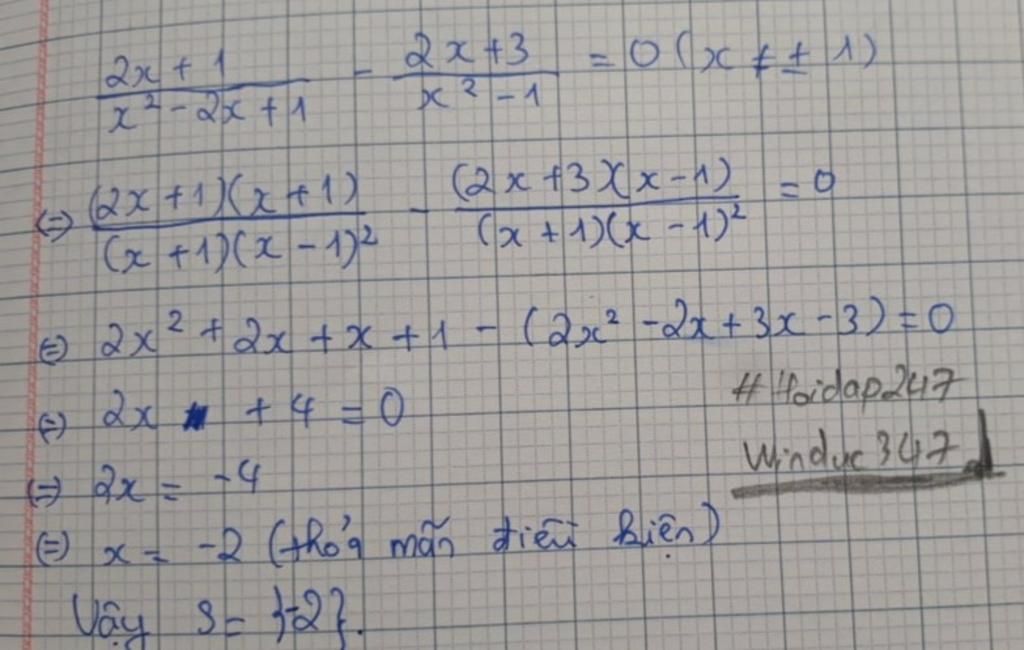 (2x + 1)/(x² - 2x + 1) - (2x + 3)/(x² - 1) = 0 (x ≠ ± 1)
⇔ (2x + 1)(x + 1)/((x + 1)(x - 1)²) - (2x + 3)(x - 1)/((x + 1)(x - 1)²) = 0
⇔ 2x² + 2x + x + 1 - (2x² - 2x + 3x - 3) = 0
⇔ 2x + 4 = 0
#Hoidap247
⇔ 2x = -4
Winduc347
⇔ x = -2 (thỏa mãn điều kiện)
Vậy S = {-2}.